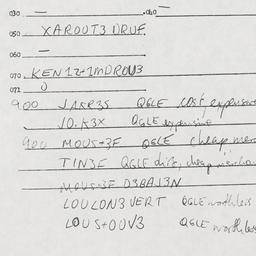 030 — .040 —
050 XAROUT3 DRUF.
060 —
070 KEN12+1MDR0U3
072 0
900 JAKR3S QGLE cost, expensive
JO.K3X QGLE expensive
900 MOUS+3F QGLE cheap
TIN3F QGLE cheap
MOUS+3F D3BAJ3N
LOULON3VERT QGLE worthless
LOUS+OUV3 QGLE worthless